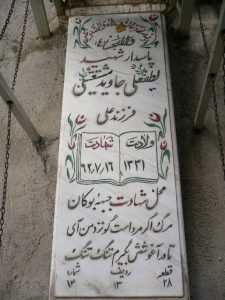 پاسدار شهید
لطفعلی جاوید مشتقی
فرزند علی
ولادت شهادت
۱۳۳۱ ۶۲٫۷٫۱۶
محل شهادت جبهه بوکان
مرگ اگر مرد است گو نزد من آی
تا در آغوشش بگیرم تنگ تنگ
قطعه ردیف شماره
۲۸ ۱۳ ۱۴